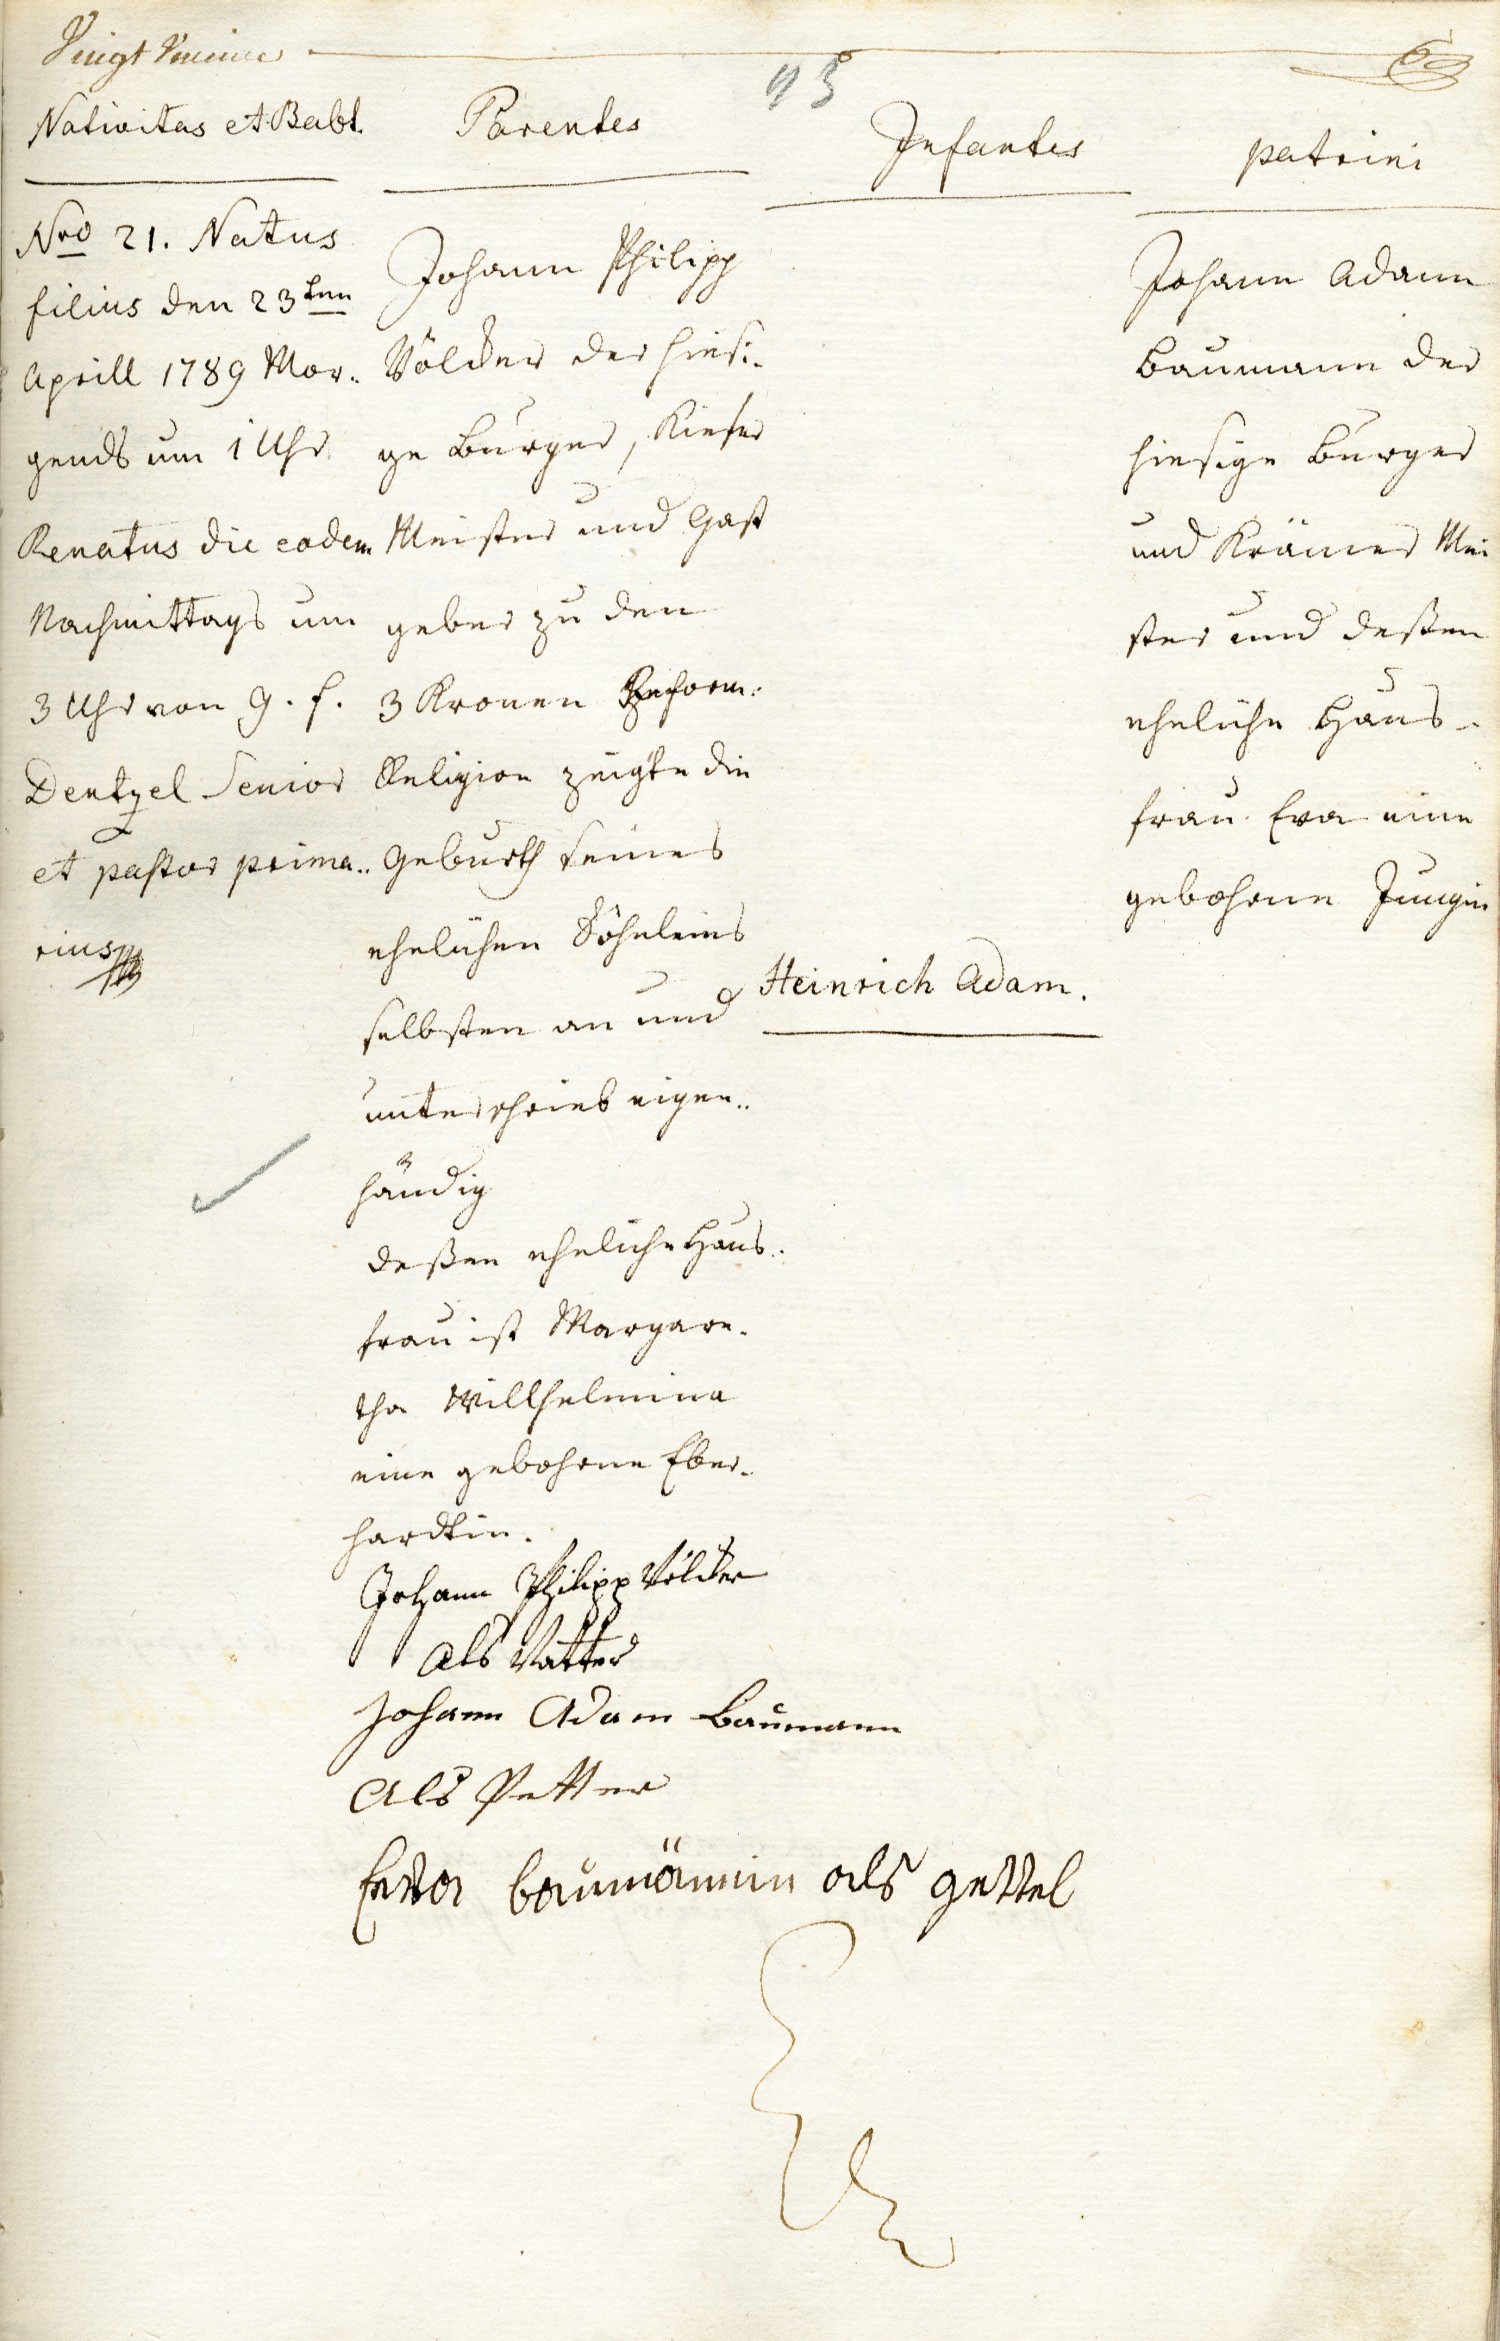 Vingt Nueime
93
Nativitas et Babt.
Nro 21. Natus
filius den 23ten
Aprill 1789 Mor..
gends um 1 Uhr
Renatus die eodem
Nachmittags um
3 Uhr von G. f.
Dentzel Senior
et pastor prima..
rius
Parentes
Johann Philipp
Völcker der hiesi..
ge Burger, Kiefer
Meister und Gast
geber zu den
3 Kronen Reform:
Religion zeigte die
Geburth seines
ehelichen Söhnleins
selbsten an und
unterschrieb eigen..
händig
deßen eheliche Haus..
frau ist Margare..
tha Willhelmina
eine gebohrne Eber..
hardtin.
Johann Philipp Völcker
Als Vatter
Johann Adam Baumann
Als Petter
Eva baumännin als gettel
Infantes
Heinrich Adam.
patrini
Johann Adam
Baumann der
hiesige Burger
und Krämer Mei
ster und deßen
eheliche Haus..
frau Eva eine
gebohrne Jungin